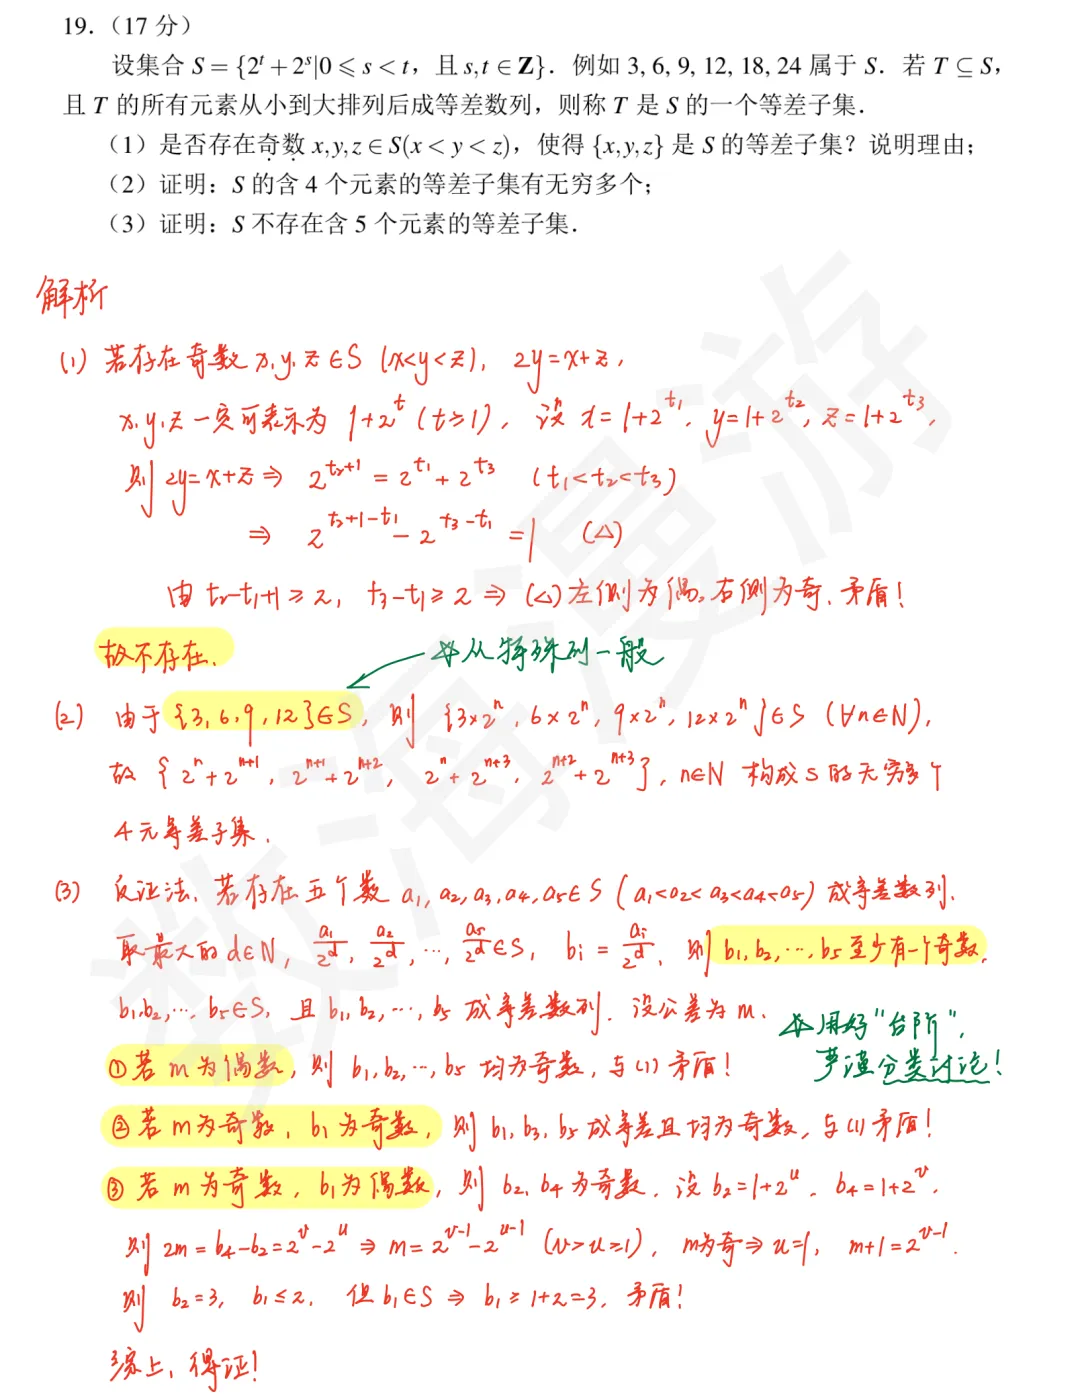 19.（17 分）
设集合 S = {2^t + 2^s | 0 ⩽ s < t，且 s,t ∈ Z}．例如 3, 6, 9, 12, 18, 24 属于 S．若 T ⊆ S，
且 T 的所有元素从小到大排列后成等差数列，则称 T 是 S 的一个等差子集．
（1）是否存在奇数 x,y,z ∈ S(x < y < z)，使得 {x,y,z} 是 S 的等差子集？说明理由；
（2）证明：S 的含 4 个元素的等差子集有无穷多个；
（3）证明：S 不存在含 5 个元素的等差子集．
解析
(1) 若存在奇数 x,y,z∈S (x<y<z), 2y=x+z,
x,y,z一定可表示为 1+2^t (t≥1), 设 x=1+2^{t_1}, y=1+2^{t_2}, z=1+2^{t_3},
则 2y=x+z ⇒ 2^{t_2+1} = 2^{t_1} + 2^{t_3} (t_1<t_2<t_3)
⇒ 2^{t_2+1-t_1} - 2^{t_3-t_1} = 1 (△)
由 t_2-t_1+1≥2, t_3-t_1≥2 ⇒ (△)左侧为偶, 右侧为奇, 矛盾!
故不存在.
从特殊到一般
(2) 由于 {3,6,9,12}∈S, 则 {3×2^n, 6×2^n, 9×2^n, 12×2^n}∈S (∀n∈N),
故 {2^n+2^{n+1}, 2^{n+1}+2^{n+2}, 2^n+2^{n+3}, 2^{n+2}+2^{n+3}}, n∈N 构成S的无穷多个
4元等差子集.
(3) 反证法, 若存在五个数 a_1,a_2,a_3,a_4,a_5∈S (a_1<a_2<a_3<a_4<a_5) 成等差数列.
取最大的d∈N, a_1/2^d, a_2/2^d, ..., a_5/2^d∈S, b_i = a_i/2^d, 则 b_1,b_2,...,b_5至少有一个奇数,
b_1,b_2,...,b_5∈S, 且 b_1,b_2,...,b_5 成等差数列. 设公差为 m.
用好"台阶",
严谨分类讨论!
①若 m 为偶数, 则 b_1,b_2,...,b_5 均为奇数, 与(1)矛盾!
②若 m 为奇数, b_1 为奇数, 则 b_1,b_3,b_5 成等差且均为奇数, 与(1)矛盾!
③若 m 为奇数, b_1 为偶数, 则 b_2,b_4 为奇数, 设 b_2=1+2^u, b_4=1+2^v,
则 2m=b_4-b_2=2^v-2^u ⇒ m=2^{v-1}-2^{u-1} (v>u≥1), m为奇⇒u=1, m+1=2^{v-1}.
则 b_2=3, b_1≤2, 但 b_1∈S ⇒ b_1≥1+2=3, 矛盾!
综上, 得证!
数海漫游